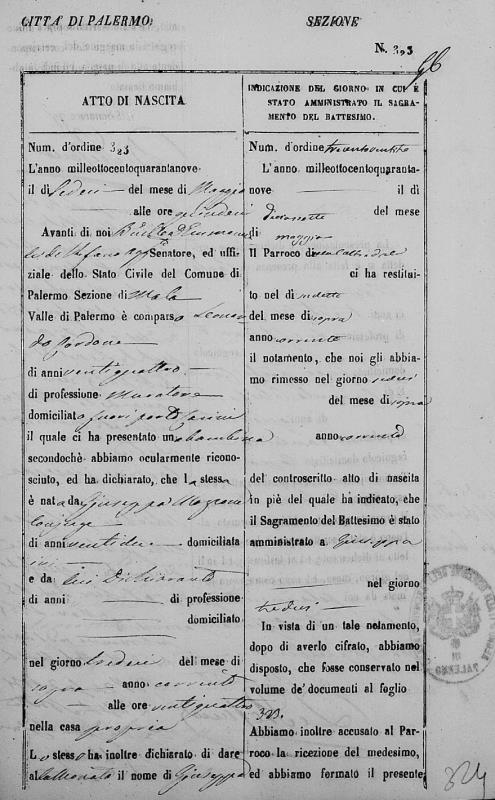 CITTA' DI PALERMO
SEZIONE
N. 323
ATTO DI NASCITA
Num. d'ordine 323
L'anno milleottocentoquarantanove
il dì Sedeci del mese di Maggio
alle ore quindeci
Avanti di noi
Senatore, ed uffi-
ziale dello Stato Civile del Comune di
Palermo Sezione di Mola
Valle di Palermo è comparso Leonar
do Giordano
di anni ventiquattro
di professione Muratore
domiciliato fuori porta
il quale ci ha presentato una bambina
secondochè abbiamo ocularmente ricono-
sciuto, ed ha dichiarato, che la stessa
è nata da Giuseppa
coniuge
di anni ventidue domiciliata
ivi
e da lui Dichiarante
di anni di professione
domiciliato
nel giorno del mese di
sopra anno corrente
alle ore ventiquattro
nella casa propria
Lo stesso ha inoltre dichiarato di dare
al neonato il nome di Giuseppa
INDICAZIONE DEL GIORNO IN CUI È
STATO AMMINISTRATO IL SAGRA-
MENTO DEL BATTESIMO.
Num. d'ordine trecentoventitre
L'anno milleottocentoquaranta-
nove il dì
diciassette del mese
di maggio
Il Parroco di Cattedrale
ci ha restitui-
to nel dì
del mese di sopra
anno corrente
il notamento, che noi gli abbia-
mo rimesso nel giorno sedeci
del mese di sopra
anno corrente
del controscritto atto di nascita
in piè del quale ha indicato, che
il Sagramento del Battesimo è stato
amministrato a Giuseppa
nel giorno
sedeci
In vista di un tale notamento,
dopo di averlo cifrato, abbiamo
disposto, che fosse conservato nel
volume de' documenti al foglio
323.
Abbiamo inoltre accusato al Par-
roco la ricezione del medesimo,
ed abbiamo formato il presente
PALERMO
324